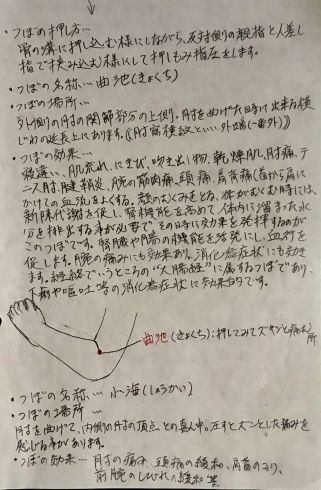 ・つぼの押し方…
骨の溝に押し込む様にしながら、反対側の親指と人差し
指で挟み込む様にして押しもみ指圧をします。
・つぼの名称…曲池(きょくち)
・つぼの場所…
外側の肘の関節部分の上側。肘を曲げた時に出来る横
じわの延長上にあります。(肘窩横紋といい、外端(一番外))
・つぼの効果…
寝違い、肌荒れ、にきび、吹き出し物、乾燥肌、肘痛、テ
ニス肘、腱鞘炎、腕の筋肉痛、頭痛、肩背痛(首から肩に
かけての血流をよくする。顔のむくみをとる、体がむくむ時には、
新陳代謝を促し、腎機能を高めて、体内に溜まった水
分を排出する事が必要で、その時に効果を発揮するのが
このつぼです。腎臓や腸の機能を活発にし、血行を
促します。腕の痛みにも効果あり。消化器症状にも効き
ます。経絡でいうところの“大腸経”に属するつぼであり、
下痢や嘔吐等の消化器症状に効果的です。
曲池(きょくち):押してみてズキンと痛む所
・つぼの名称…小海(しょうかい)
・つぼの場所…
肘を曲げて、内側の肘の頂点との真ん中。圧すとズンとした痛みを
感じる事があります。
・つぼの効果…肘の痛み、頭痛の緩和、肩首のコリ、
前腕のしびれの緩和等